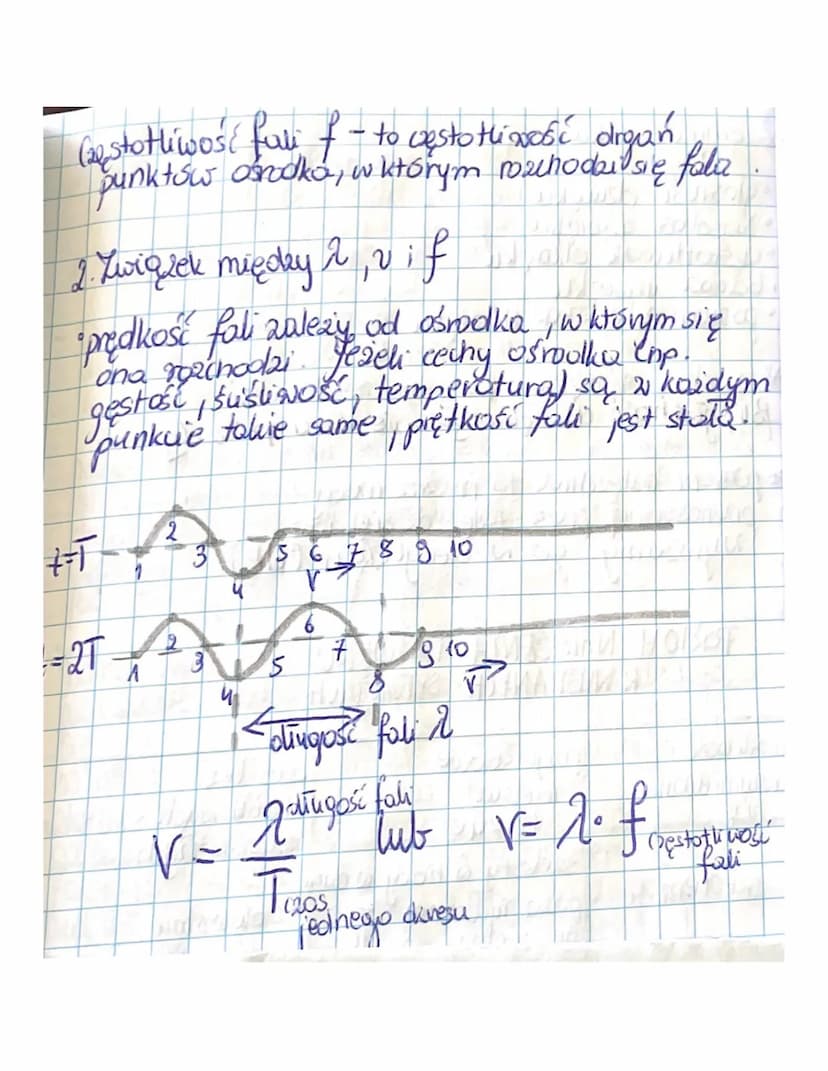 Częstotliwość fali f - to częstotliwość drgań
punktów ośrodka, w którym rozchodzi się fala.
2. Związek między λ, v i f
• prędkość fali zależy od ośrodka, w którym się
ona rozchodzi. Jeżeli cechy ośrodka (np.
gęstość, śuśliwość, temperatura) są w każdym
punkcie takie same, piętkość fali jest stała.
t=T 1 2 3 4 5 6 7 8 9 10
v
t=2T 1 2 3 4 5 6 7 8 9 10
v
długość fali λ
v = λ długość fali / T czas jednego okresu lub v = λ · f częstotliwość fali